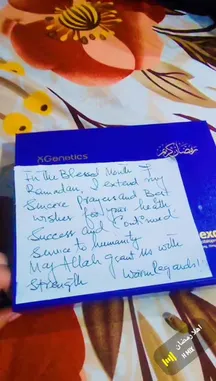 Genetics
رمضان كريم
In the Blessed Month of
Ramadan, I extend my
Sincere Prayers and Best
wishes for your health
Success and Continued
Service to humanity
May Allah grant us with
strength Warm Regards!
exc
اهلا رمضان